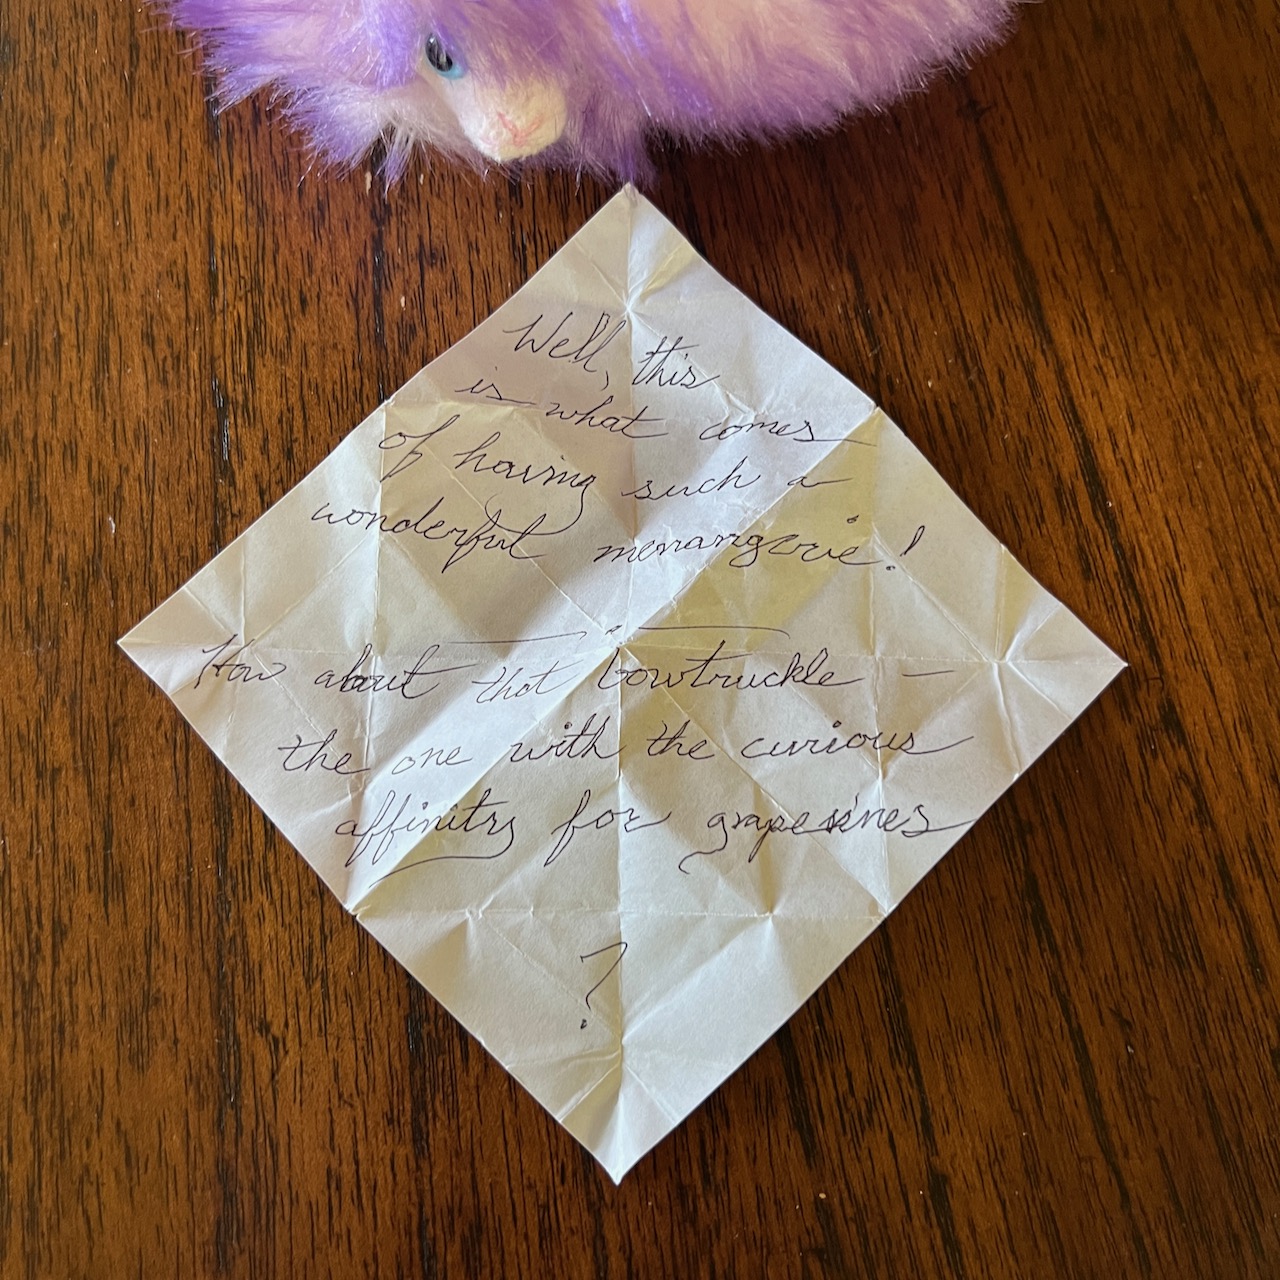 Well, this
is what comes
of having such a
wonderful menangerie!
How about that bowtruckle –
the one with the curious
affinity for grapevines
?